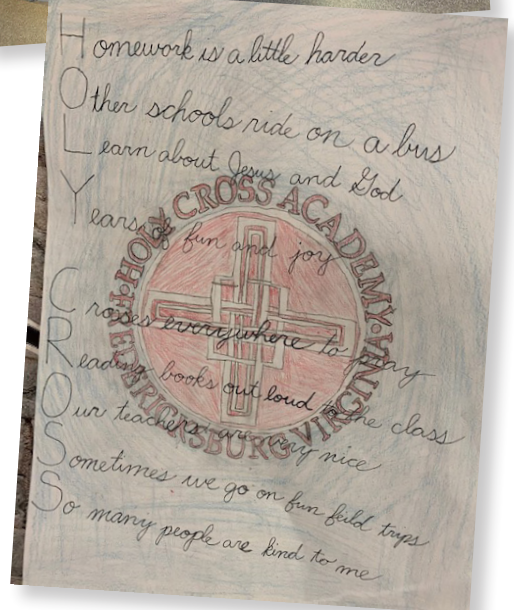 Homework is a little harder
Other schools ride on a bus
Learn about Jesus and God
Years of fun and joy
Crosses everywhere to pray
Reading books out loud to the class
Our teachers are very nice
Sometimes we go on fun feild trips
So many people are kind to me
HOLY CROSS ACADEMY • FREDERICKSBURG VIRGINIA •